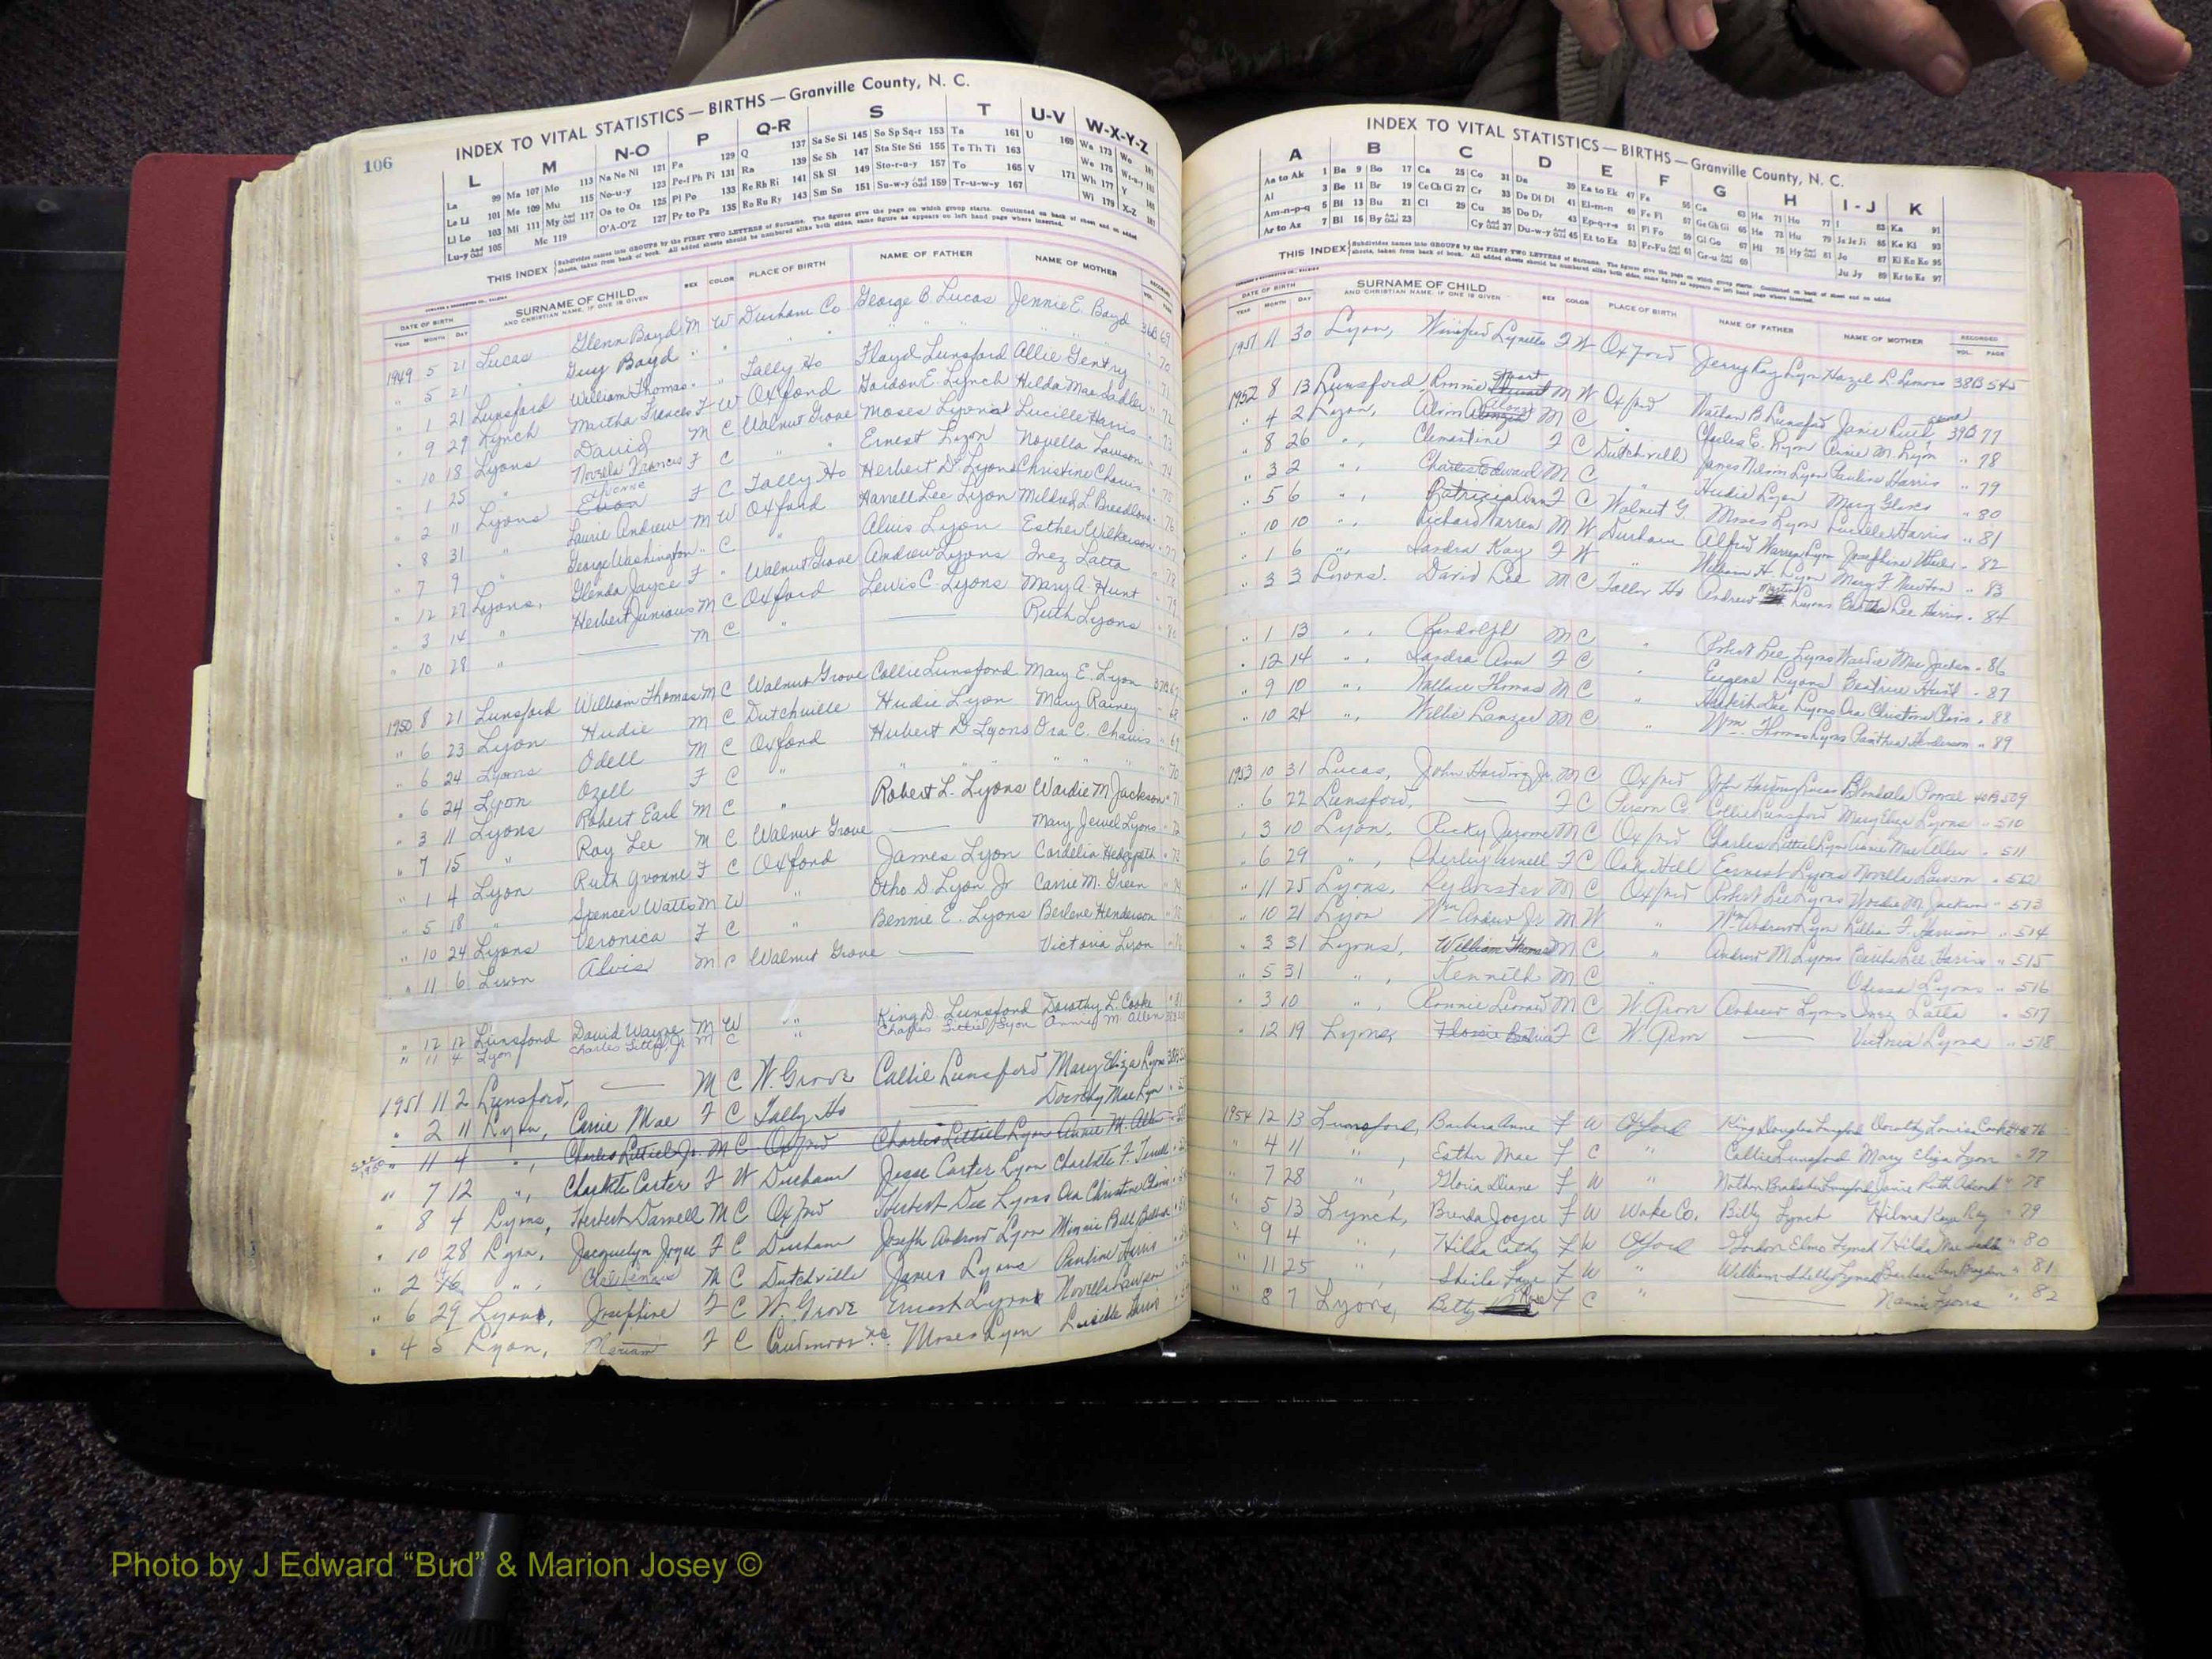 106
INDEX TO VITAL STATISTICS — BIRTHS — Granville County, N. C.
L M N-O P Q-R S T U-V W-X-Y-Z
La 99 Ma 107 Mo 113 Na Ne Ni 121 Pa 129 Q 137 Sa Se Si 145 So Sp Sq-r 153 Ta 161 U 169 Wa 173 Wo
Le Li 101 Me 109 Mu 115 No-u-y 123 Pe-f Ph Pi 131 Ra 139 Sc Sh 147 Sta Ste Sti 155 Te Th Ti 163 We 175
Ll Lo 103 Mi 111 My And Odd 117 Oa to Oz 125 Pl Po 133 Re Rh Ri 141 Sk Sl 149 Sto-r-u-y 157 To 165 V 171 Wh 177 Y
Lu-y And Odd 105 Mc 119 O'A-O'Z 127 Pr to Pz 135 Ro Ru Ry 143 Sm Sn 151 Su-w-y And Odd 159 Tr-u-w-y 167 Wi 179 X-Z
THIS INDEX Subdivides names into GROUPS by the FIRST TWO LETTERS of Surname. The figures give the page on which group starts. Continued on back of sheet and on added
sheets, taken from back of book. All added sheets should be numbered alike both sides, same figure as appears on left hand page where inserted.
DATE OF BIRTH SURNAME OF CHILD SEX COLOR PLACE OF BIRTH NAME OF FATHER NAME OF MOTHER
YEAR MONTH DAY AND CHRISTIAN NAME, IF ONE IS GIVEN VOL.
1949 5 21 Lucas Glenn Boyd M W Durham Co George B. Lucas Jennie E. Boyd 36B 69
" 5 21 " Guy Boyd " " " " " " 70
" 1 21 Lunsford William Thomas " " Tally Ho Floyd Lunsford Allie Gentry " 71
" 9 29 Lynch Martha Frances F W Oxford Gordon E. Lynch Hilda Mae Sadler " 72
" 10 18 Lyons David M C Walnut Grove Moses Lyons Lucille Harris " 73
" 1 25 " Novella Frances F C " Ernest Lyon Novella Lawson " 74
" 2 11 Lyons Yvonne F C Tally Ho Herbert D. Lyons Christine Chavis " 75
" 8 31 " Laurie Andrew M W Oxford Harrell Lee Lyon Mildred L Breedlove " 76
" 7 9 " George Washington " C " Alvis Lyon Esther Wilkerson " 77
" 12 27 Lyons, Glenda Jayce F " Walnut Grove Andrew Lyons Inez Latta " 78
" 3 14 " Herbert Junious M C Oxford Lewis C. Lyons Mary A. Hunt " 79
" 10 28 " —— M C " —— Ruth Lyons " 80
1950 8 21 Lunsford William Thomas M C Walnut Grove Collie Lunsford Mary E. Lyon 37B 67
" 6 23 Lyon Hudie M C Dutchville Hudie Lyon Mary Rainey " 68
" 6 24 Lyons Odell M C Oxford Hubert D Lyons Ora C. Chavis " 69
" 6 24 Lyon Ozell F C " " " " 70
" 3 11 Lyons Robert Earl M C " Robert L. Lyons Wardie M Jackson " 71
" 7 15 " Roy Lee M C Walnut Grove —— Mary Jewel Lyons " 72
" 1 4 Lyon Ruth Yvonne F C Oxford James Lyon Cordelia Hedgpeth " 73
" 5 18 " Spencer Watts M W " Otho D. Lyon Jr Carrie M. Green " 74
" 10 24 Lyons Veronica F C " Bennie E. Lyons Berlene Henderson " 75
" 11 6 Lyon Alvis M C Walnut Grove —— Victoria Lyon
" 12 12 Lunsford David Wayne M W " King D. Lunsford Dorothy L. Cooke " 81
" 11 4 Lyon Charles Littiel, Jr M C " Charles Littiel Lyon Annie M. Allen
1951 11 2 Lunsford, —— M C W. Grove Callie Lunsford Mary Eliza Lyons 38B
" 2 11 Lyon, Carrie Mae F C Tally Ho Dorothy Mae Lyon
See 1950 " 11 4 ", Charles Littiel Jr. M C Oxford Charles Littiel Lyon Annie M. Allen
" 7 12 ", Charlotte Carter F W Durham Jesse Carter Lyon Charlotte F. Terrell
" 8 4 Lyons, Herbert Darnell M C Oxford Herbert Dee Lyons Ora Christine Chavis
" 10 28 Lyon, Jacquelyn Joyce F C Durham Joseph Andrew Lyon Minnie Bell
" 2 16 ", M C Dutchville James Lyons Pauline Harris
" 6 29 Lyons, Josephine F C W. Grove Ernest Lyons Novella Lawson
" 4 5 Lyon, F C N.C. Moses Lyon Lucille Harris
INDEX TO VITAL STATISTICS — BIRTHS — Granville County, N. C.
A B C D E F G H I-J K
Aa to Ak 1 Ba 9 Bo 17 Ca 25 Co 31 Da 39 Ea to Ek 47 Fa 55 Ga 63 Ha 71 Ho 77 I 83 Ka 91
Al 3 Be 11 Br 19 Ce Ch Ci 27 Cr 33 De Di Dl 41 El-m-n 49 Fe Fi 57 Ge Gh Gi 65 He 73 Hu 79 Ja Je Ji 85 Ke Ki 93
Am-n-p-q 5 Bi 13 Bu 21 Cl 29 Cu 35 Do Dr 43 Ep-q-r-s 51 Fl Fo 59 Gl Go 67 Hi 75 Hy And Odd 81 Jo 87 Kl Kn Ko 95
Ar to Az 7 Bl 15 By And Odd 23 Cy And Odd 37 Du-w-y And Odd 45 Et to Ez 53 Fr-Fu And Odd 61 Gr-u And Odd 69 Ju Jy 89 Kr to Kz 97
THIS INDEX Subdivides names into GROUPS by the FIRST TWO LETTERS of Surname. The figures give the page on which group starts. Continued on back of sheet and on added
sheets, taken from back of book. All added sheets should be numbered alike both sides, same figure as appears on left hand page where inserted.
DATE OF BIRTH SURNAME OF CHILD SEX COLOR PLACE OF BIRTH NAME OF FATHER NAME OF MOTHER RECORDED
YEAR MONTH DAY AND CHRISTIAN NAME, IF ONE IS GIVEN VOL. PAGE
1951 11 30 Lyon, Winifred Lynette F W Oxford Jerry Ray Lyon Hazel L. 38B 545
1952 8 13 Lunsford, Ronnie Stuart M W Oxford Nathan B Lunsford Janie Ruth 39B 77
" 4 2 Lyon, Alvin Alonza M C " Charles E. Lyon Annie M. Lyon " 78
" 8 26 ", Clementine F C Dutchville James Nelson Lyon Pauline Harris " 79
" 3 2 ", Charles Edward M C " Hudie Lyon Mary " 80
" 5 6 ", Patricia Ann F C Walnut G. Moses Lyon Lucille Harris " 81
" 10 10 ", Richard Warren M W Durham Alfred Warren Lyon Josephine " 82
" 1 6 ", Sandra Kay F W " William H. Lyon Mary F. Newton " 83
" 3 3 Lyons. David Lee M C Tally Ho Andrew Lyons Bertha Lee Harris " 84
" 1 13 ", Randolph M C " Robert Lee Lyons Wardie Mae Jackson " 86
" 12 14 ", Sandra Ann F C " Eugene Lyons Beatrice Hunt " 87
" 9 10 ", Wallace Thomas M C " Herbert Dee Lyons Ora Christine Chavis " 88
" 10 24 ", Willie M C " Wm. Thomas Lyons Panthea Henderson " 89
1953 10 31 Lucas, John Harding Jr. M C Oxford John Harding Lucas Blondala 40B 509
" 6 22 Lunsford, —— F C Person Co. Collie Lunsford Mary Eliza Lyons " 510
" 3 10 Lyon, Ricky Jerome M C Oxford Charles Littiel Lyon Annie Mae Allen " 511
" 6 29 ", Shirley F C Oak Hill Earnest Lyons Novella Lawson " 512
" 11 25 Lyons, Sylvester M C Oxford Robert Lee Lyons Wardie M. Jackson " 513
" 10 21 Lyon Wm Andrew Jr M W " Wm. Andrew Lyon Lillian F. " 514
" 3 31 Lyons, William Thomas M C " Andrew M Lyons Bertha Lee Harris " 515
" 5 31 ", Kenneth M C —— Odessa Lyons " 516
" 3 10 ", Ronnie M C W. Grove Andrew Lyons Inez Latta " 517
" 12 19 Lyons, Flossie F C W. Grove —— Victoria Lyons " 518
1954 12 13 Lunsford, Barbara Anne F W Oxford King Douglas Lunsford Dorothy Louise Cooke 41B 76
" 4 11 ", Esther Mae F C " Callie Lunsford Mary Eliza Lyon " 77
" 7 28 ", Gloria Diane F W " Nathan Lunsford Janie Ruth " 78
" 5 13 Lynch, Brenda Joyce F W Wake Co. Billy Lynch Hilma Ray " 79
" 9 4 ", Hilda Cathy F W Oxford Gordon Elmo Lynch Hilda Mae Sadler " 80
" 11 25 ", Sheila Faye F W " William Shelly Lynch Barbara Ann " 81
" 8 7 Lyons, Betty F C " —— Nannie Lyons " 82
Photo by J Edward “Bud” & Marion Josey ©